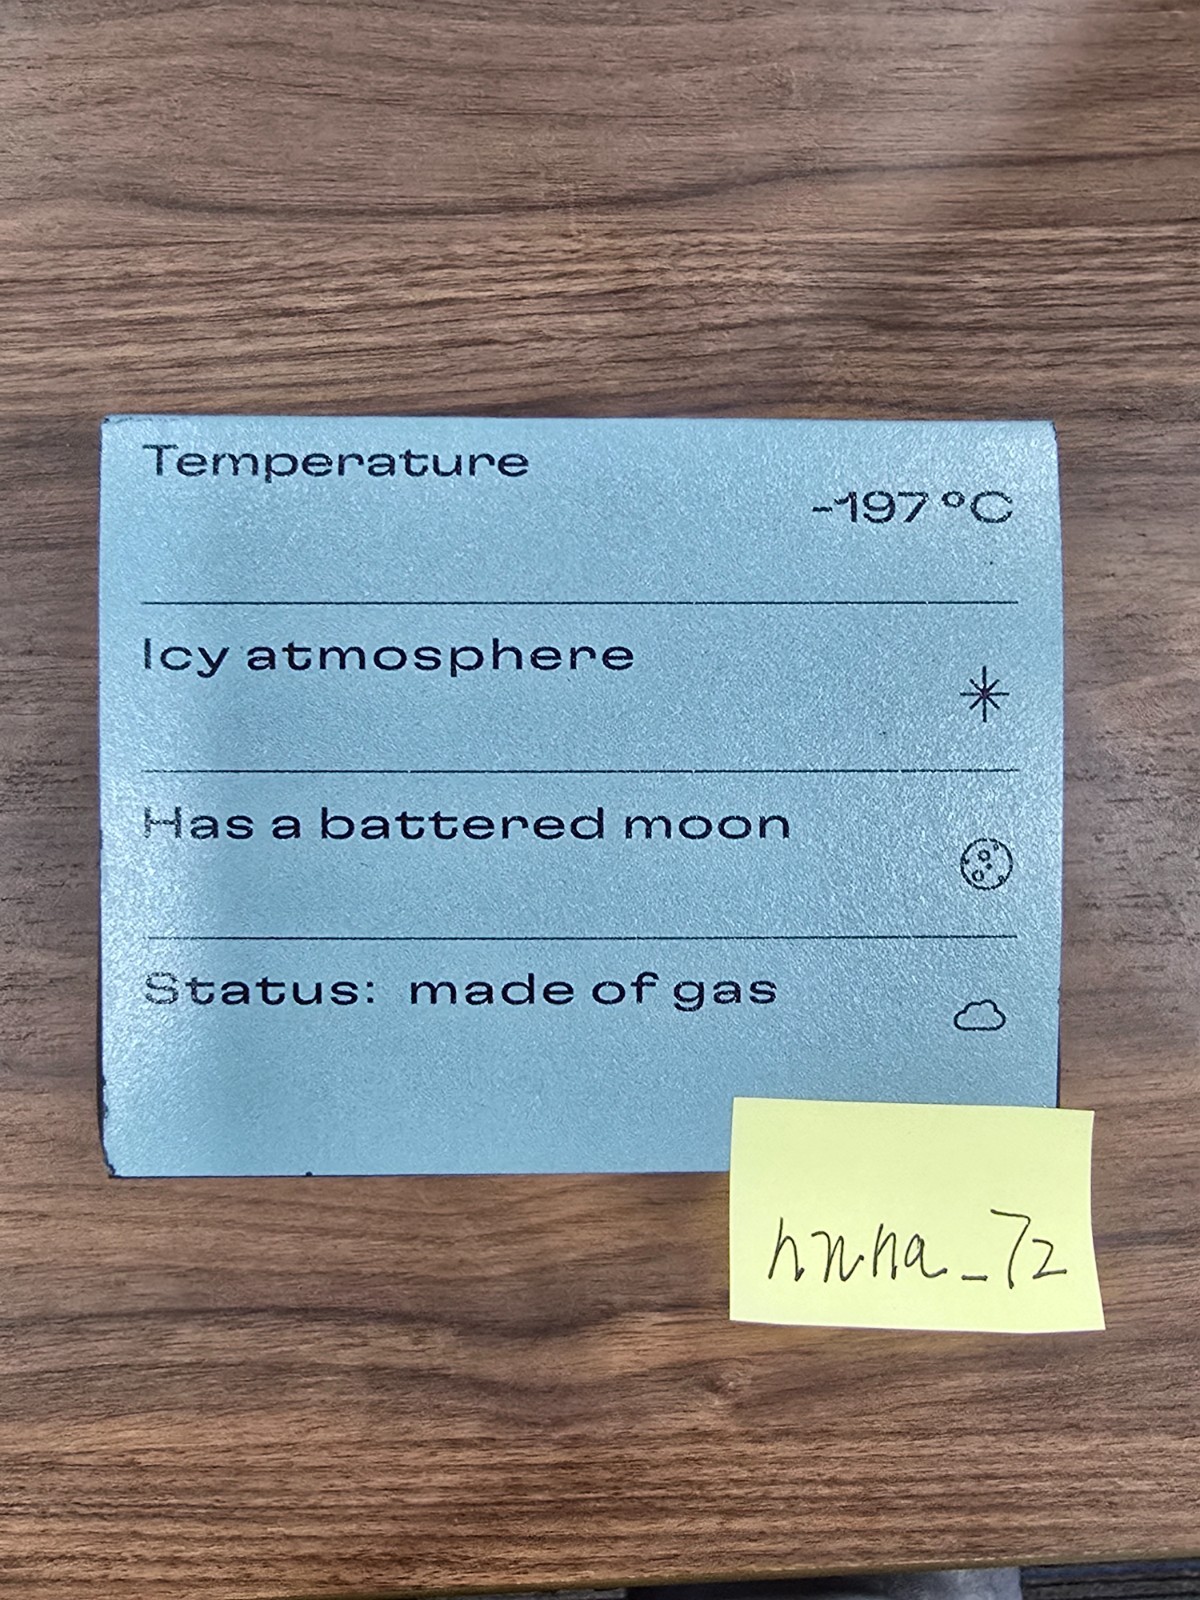 Temperature
-197°C
Icy atmosphere
Has a battered moon
Status: made of gas
hnna_72